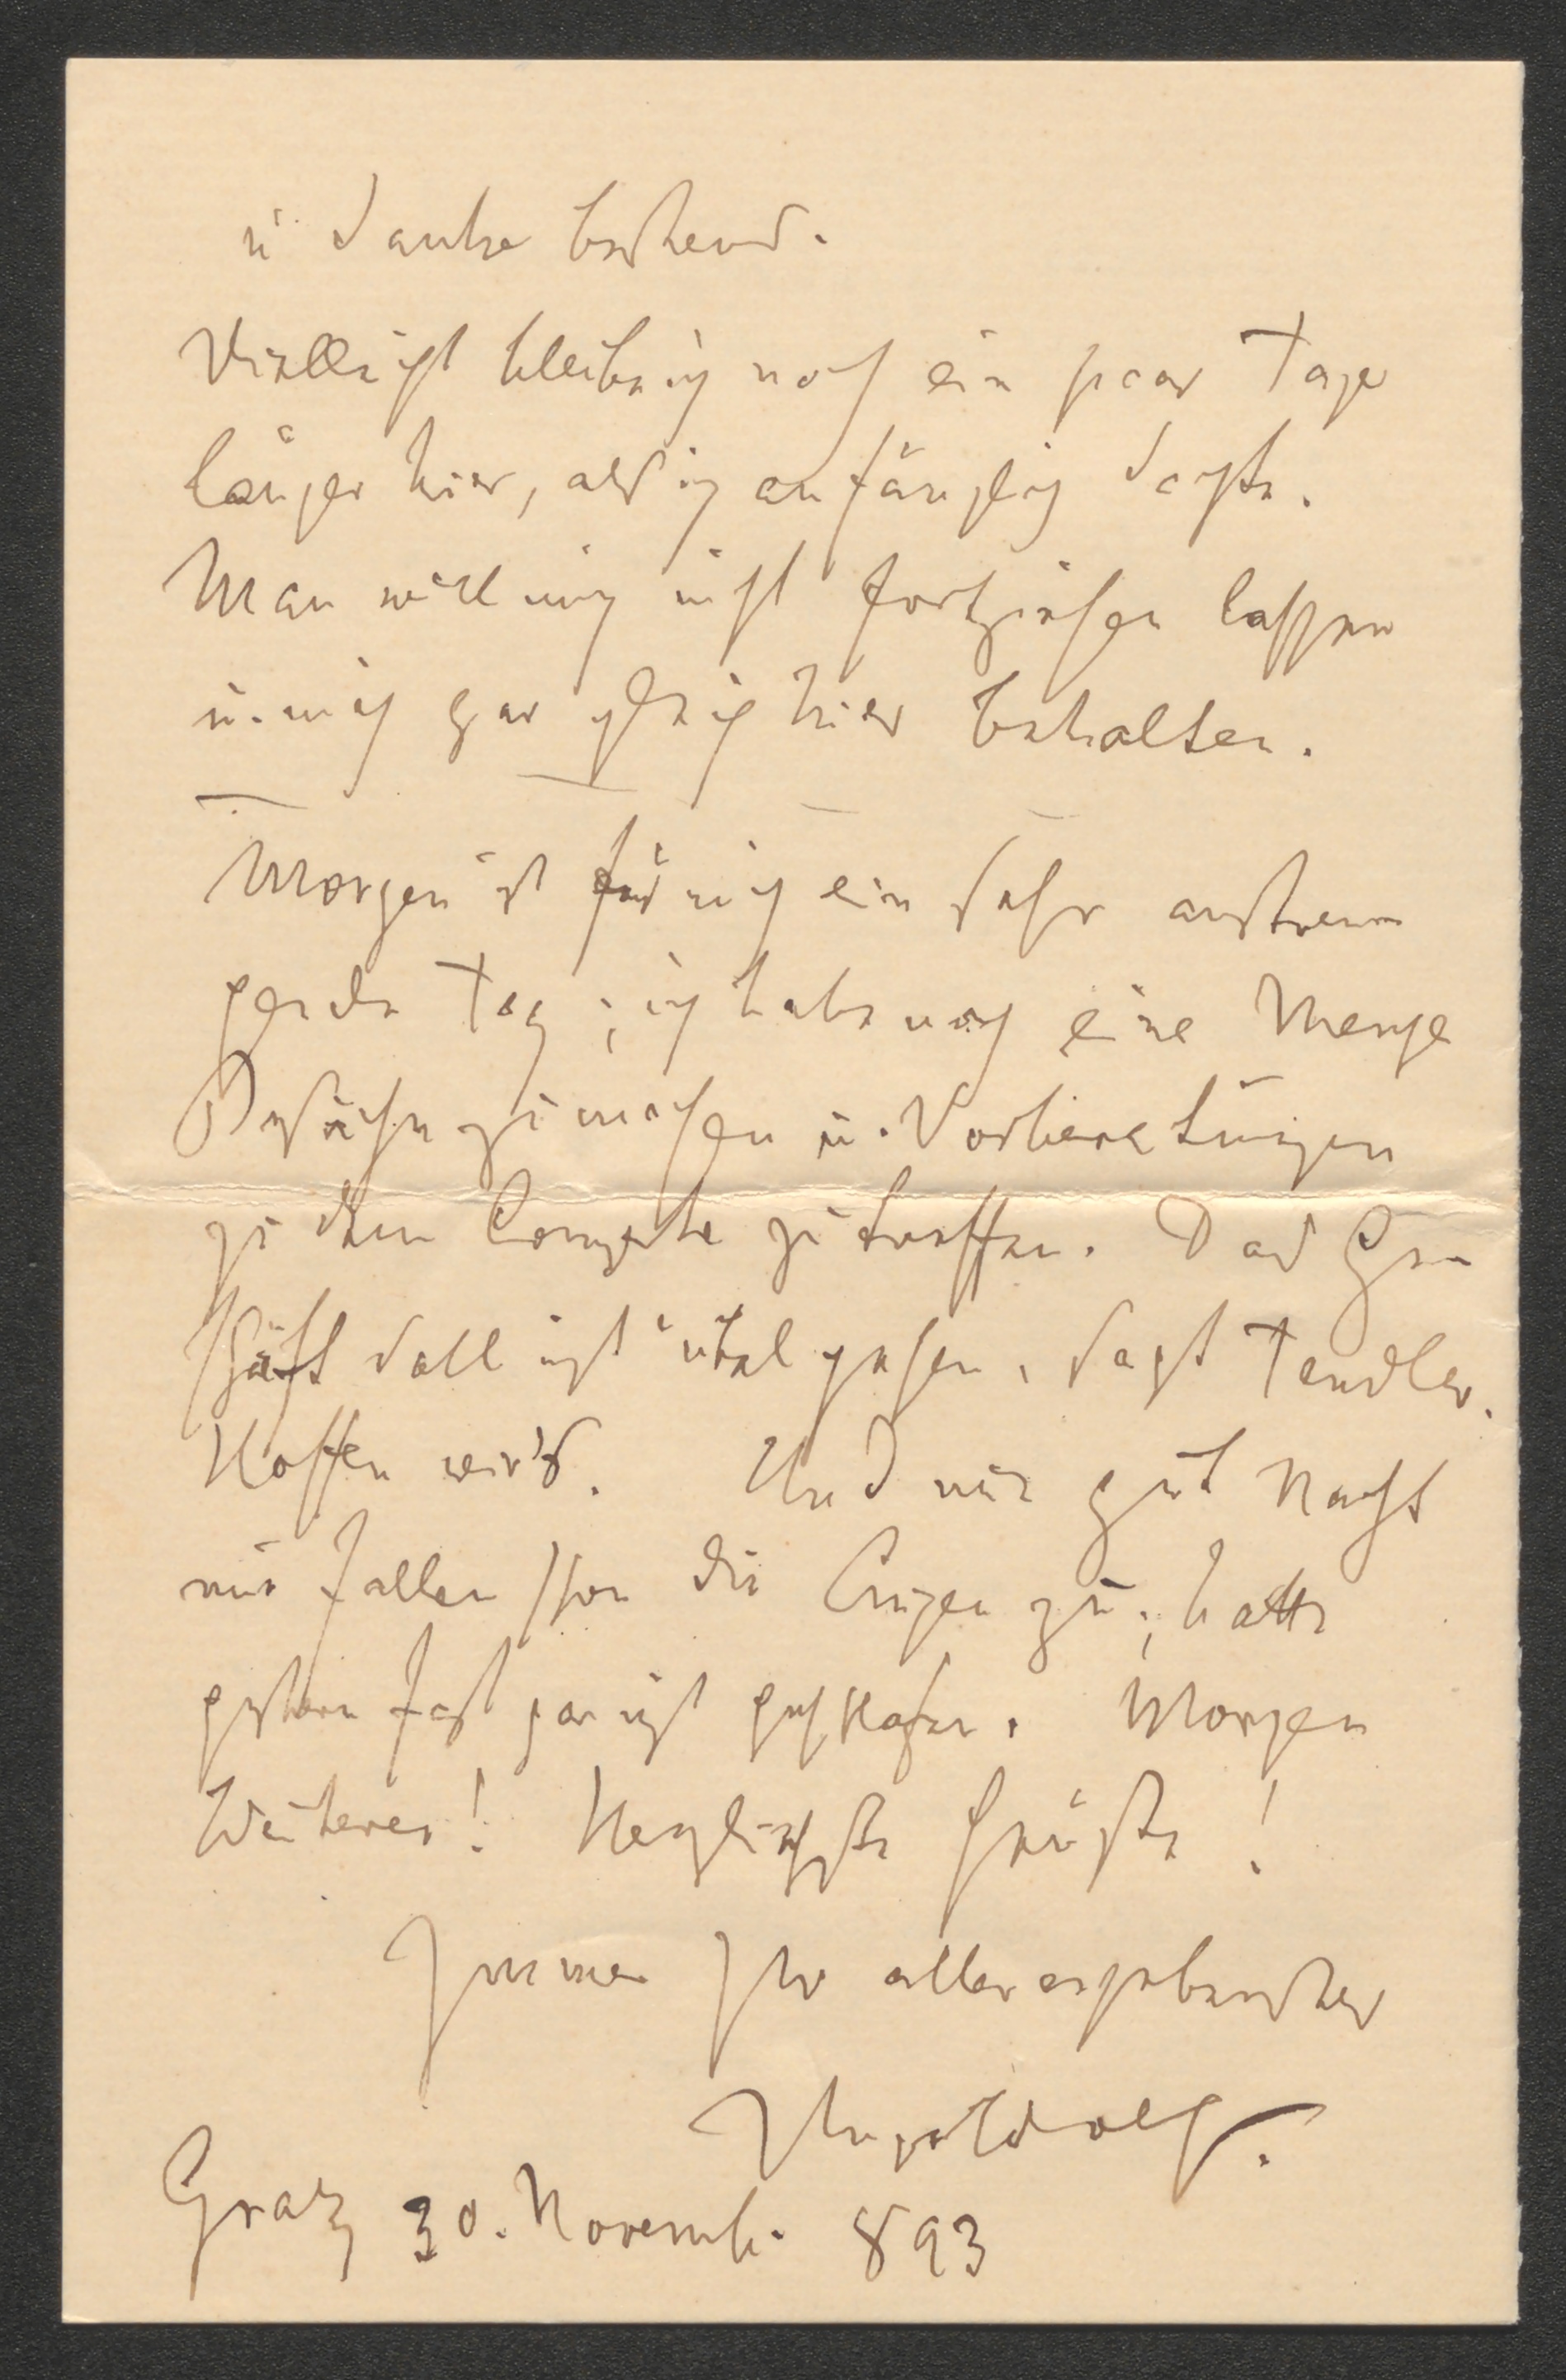 u danke bestens.
Vielleicht bleibe ich noch ein paar Tage
länger hier, als ich anfänglich dachte.
Man will mich nicht fortziehen lassen
u. mich gar gleich hier behalten.
Morgen ist für mich ein sehr anstren
gender Tag; ich habe noch eine Menge
Besuche zu machen u. Vorbereitungen
zu dem Concerte zu treffen. Das Ge-
schäft soll nicht übel gehen, sagt Tendler.
Hoffen wir's. Und nun gut Nacht
mir fallen schon die Augen zu; hatte
gestern fast gar nicht geschlafen. Morgen
Weiteres! Herzlichste Grüße!
Immer Ihr allerergebenster
Hugo Wolf.
Graz 30. Novemb. 893